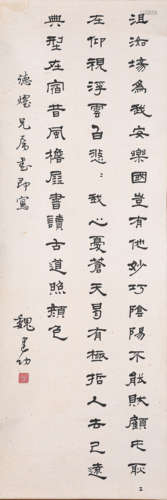 沮洳場為我安樂國豈有他妙巧陰陽不能賊顧此耿〻
在仰視浮雲白悠〻我心憂蒼天曷有極哲人去已遠
典型在宿昔風檐展書讀古道照顏色
德燿兄屬書即寫
魏建功